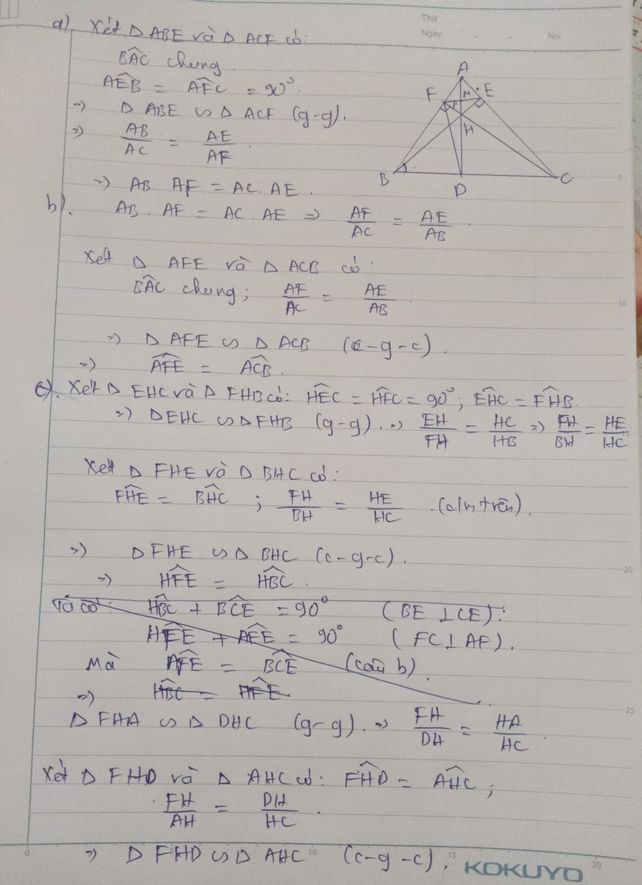 Thứ
Ngày No.
a) Xét Δ ABE và Δ ACF có:
BÂC chung
AÊB = AF̂C = 90°
=> Δ ABE ∽ Δ ACF (g-g).
=> AB/AC = AE/AF.
=> AB. AF = AC. AE.
A
F M E
H
B D C
b). AB. AF = AC. AE => AF/AC = AE/AB
Xét Δ AFE và Δ ACB có:
BÂC chung; AF/AC = AE/AB
=> Δ AFE ∽ Δ ACB (c-g-c).
=> AF̂E = AĈB.
c). Xét Δ EHC và Δ FHB có: HÊC = HF̂C = 90°; EĤC = FĤB.
=> Δ EHC ∽ Δ FHB (g-g). => EH/FH = HC/HB => FH/BH = HE/HC
Xét Δ FHE và Δ BHC có:
FĤE = BĤC ; FH/BH = HE/HC (c/m trên).
=> Δ FHE ∽ Δ BHC (c-g-c).
=> HF̂E = HB̂C.
Ta có: HB̂C + BĈE = 90° (BE ⊥ CE).
HF̂E + AF̂E = 90° (FC ⊥ AF).
Mà AF̂E = BĈE (câu b).
=> HB̂C = HF̂E
Δ FHA ∽ Δ DHC (g-g). => FH/DH = HA/HC
Xét Δ FHD và Δ AHC có: FĤD = AĤC;
FH/AH = DH/HC.
=> Δ FHD ∽ Δ AHC (c-g-c).
5
10
20
25
0 10 15 20
KOKUYO